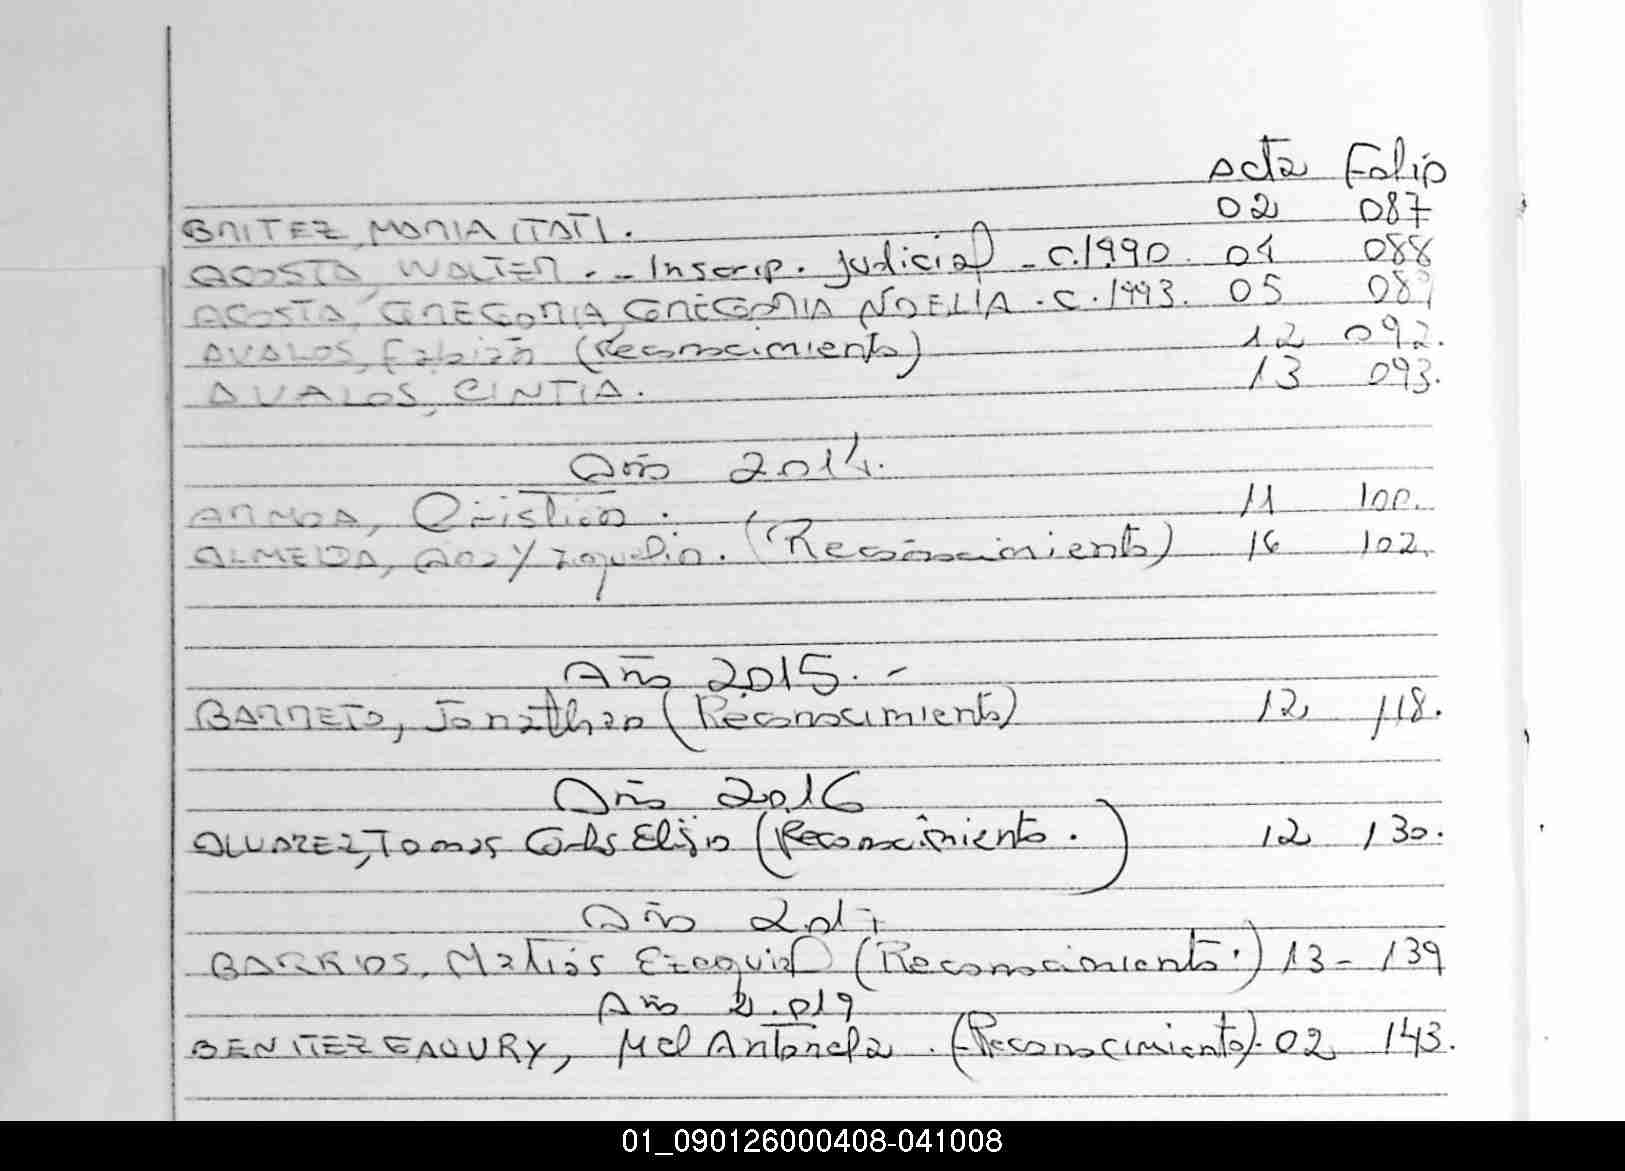 Acta Folio
BNITEZ, MARIA ITATI. 02 087
ACOSTA, WALTER. - Inscrip. judicial - C.1990. 04 088
ACOSTA, GREGORIA GREGORIA NOELIA. C. 1993. 05 089
AVALOS, Fabián (Reconocimiento) 12 092.
AVALOS, CINTIA. 13 093.
Año 2014.
ARMOA, Cristian. 11 100.
ALMEIDA, (Reconocimiento) 16 102.
Año 2015. -
BARRETO, Jonathan (Reconocimiento) 12 118.
Año 2016
ALVAREZ, Tomas Carlos Elijio (Reconocimiento.) 12 130.
Año 2017
BARRIOS, Matías Ezequiel (Reconocimiento.) 13 - 139
Año 2.019
BENITEZ EAQURY, Mel Antonela. (Reconocimiento). 02 143.
01_090126000408-041008